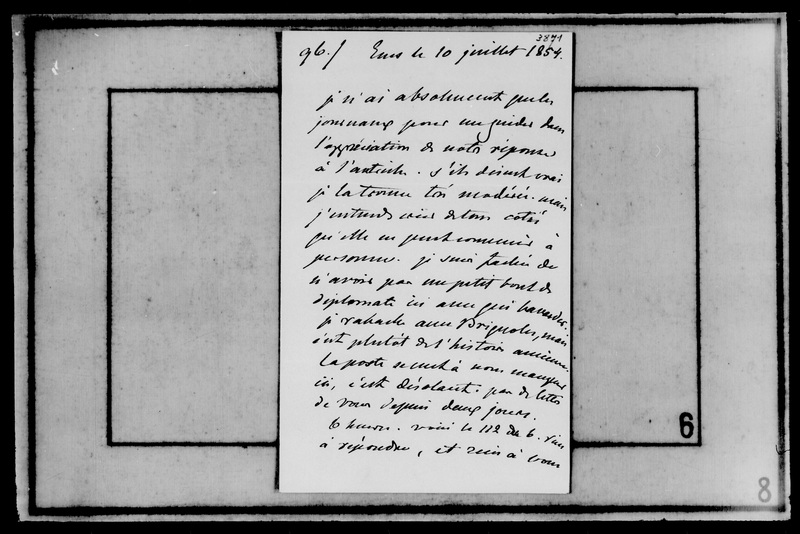 3871
96. / Ems le 10 juillet 1854.
je n'ai absolument que les
journaux pour me guider dans
l'appréciation de notre réponse
à l'autriche. s'ils disent vrai
je la trouve très modérée. mais
j'entends crier de tous cotés
qu'elle ne peut convenir à
personne. je suis fachée de
n'avoir pas un petit bout de
diplomate ici avec qui bavarder.
je rabache avec Brignoles, mais
c'est plutôt de l'histoire ancienne.
La poste se met à nous manquer
ici, c'est désolant. pas de lettre
de vous depuis deux jours.
6 heures. voici le 112 de 6. rien
à répondre, et rien à vous
6
8